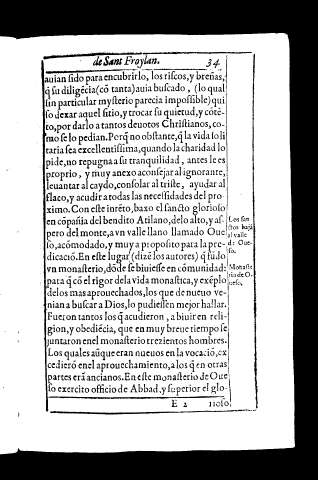 de Sant Froylan. 34
auian sido para encubrirlo, los riscos, y breñas,
q̃ su diligẽcia (cõ tanta) auia buscado, (lo qual
sin particular mysterio parecia impossible) qui
so dexar aquel sitio, y trocar su quietud, y cõtẽ-
to, por darlo a tantos deuotos Christianos, co-
mo se lo pedian. Perq̃ no obstante, q̃ la vida soli
taria sea excellentissima, quando la charidad lo
pide, no repugna a su tranquilidad, antes le es
proprio, y muy anexo aconsejar al ignorante,
leuantar al caydo, consolar al triste, ayudar al
flaco, y acudir a todas las necessidades del pro-
ximo. Con este intẽto, baxo el sancto glorioso
en cõpañia del bendito Atilano, de lo alto, y as-
pero del monte, a vn valle llano llamado Oue
so, acõmodado, y muy a proposito para la pre-
dicaciõ. En este lugar (dizẽ los autores) q̃ fũdo
vn monasterio, dõde se biuiesse en comunidad:
para q̃ cõ el rigor de la vida monastica, y exẽplo
de los mas aprouechados, los que de nueuo ve-
nian a buscar a Dios, lo pudiessen mejor hallar.
Fueron tantos los q̃ acudieron, a biuir en reli-
gion, y obediẽcia, que en muy breue tiempo se
juntaron en el monasterio trezientos hombres.
Los quales aũque eran nueuos en la vocaciõ, ex
cedierõ en el aprouechamiento, a los q̃ en otras
partes erã ancianos. En este monasterio de Oue
so exercito officio de Abbad, y superior el glo-
E 2 rioso
Los san
ctos baja
al valle
de Oue-
so.
Monaste
rio de O-
ueso.